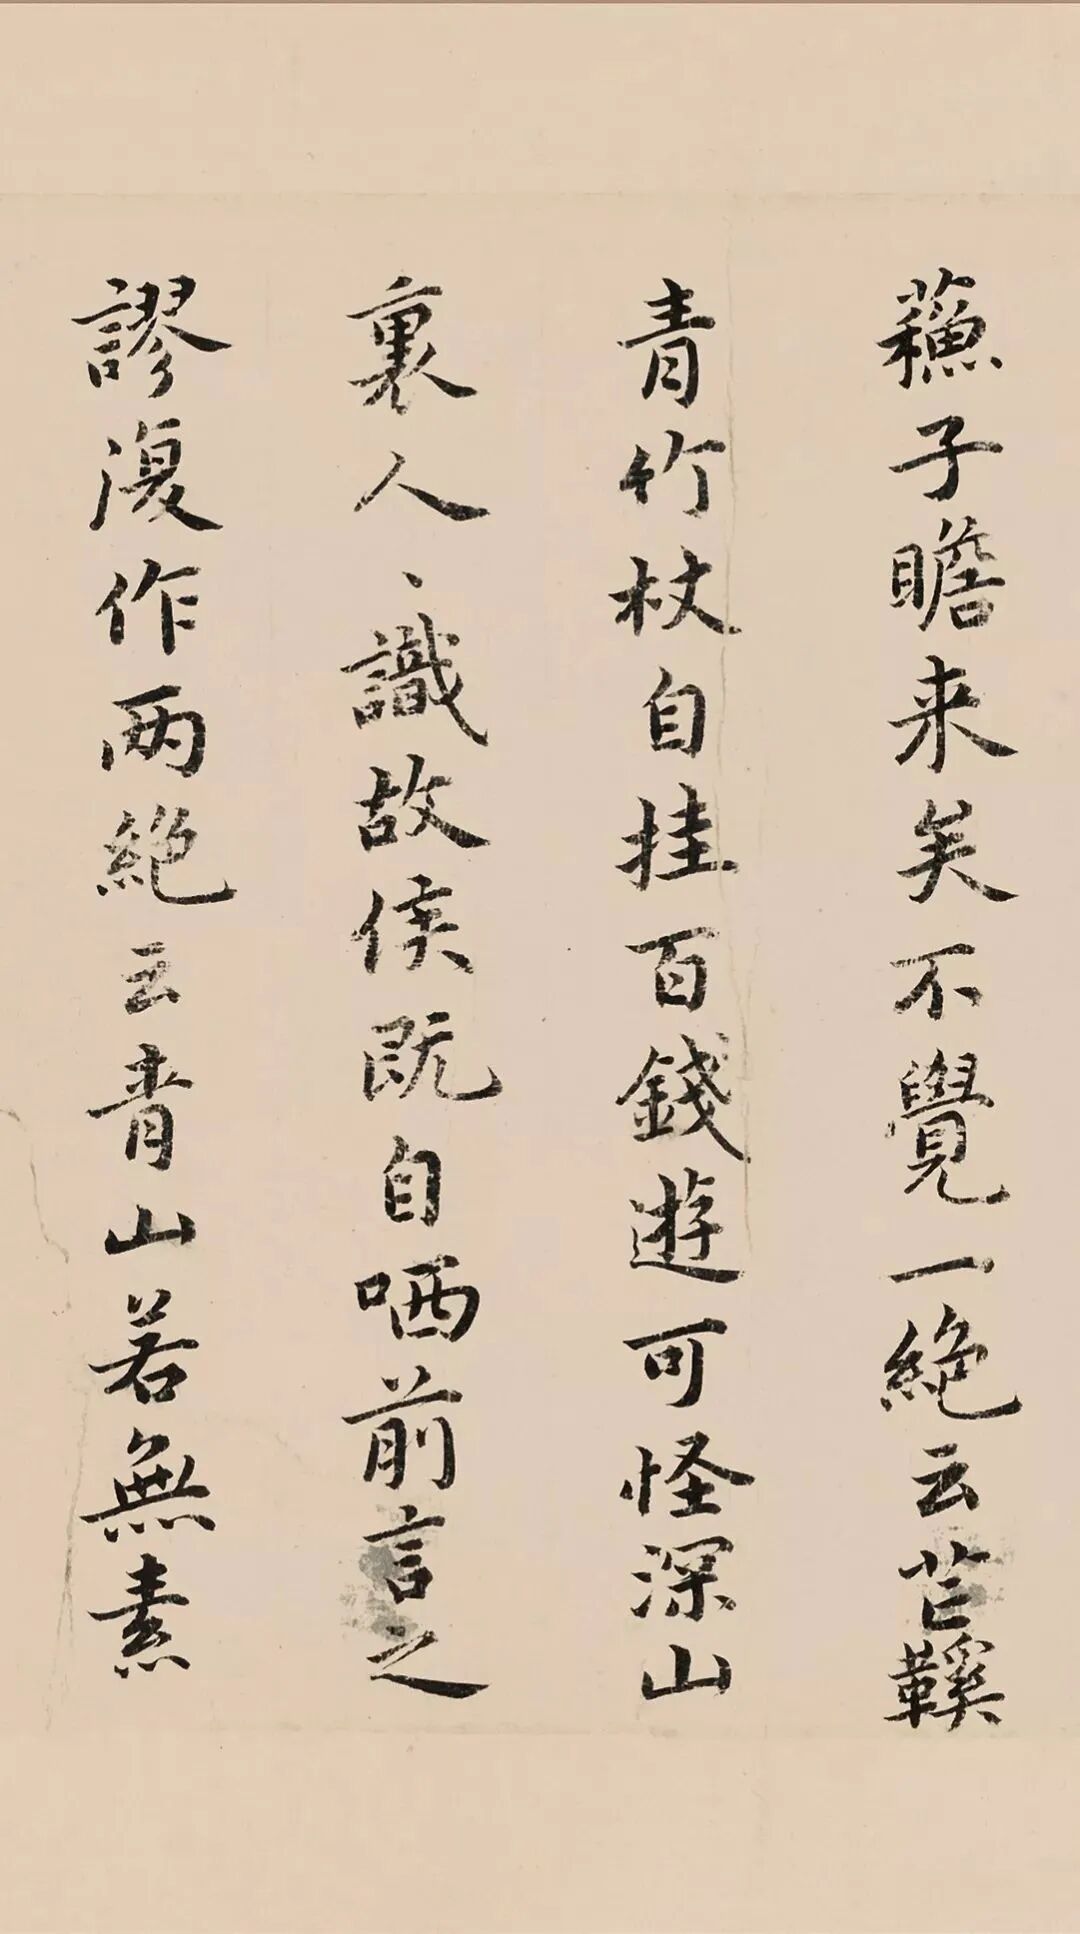 蘓子瞻来矣不覺一絶云芒鞵
青竹杖自挂百錢遊可怪深山
裏人〻識故侯既自哂前言之
謬復作两絶云青山若無素